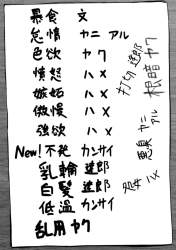 暴食 文
怠惰 ヤニ アル
色欲 ヤク
憤怒 ハメ
嫉妬 ハメ
傲慢 ハメ
強欲 ハメ
New! 不発 カンサイ
乳輪 達郎
白髪 達郎
低温 カンサイ
乱用 ヤク
打切 達郎
根暗 ヤク
悪臭 ヤニ アル
怪 ハメ